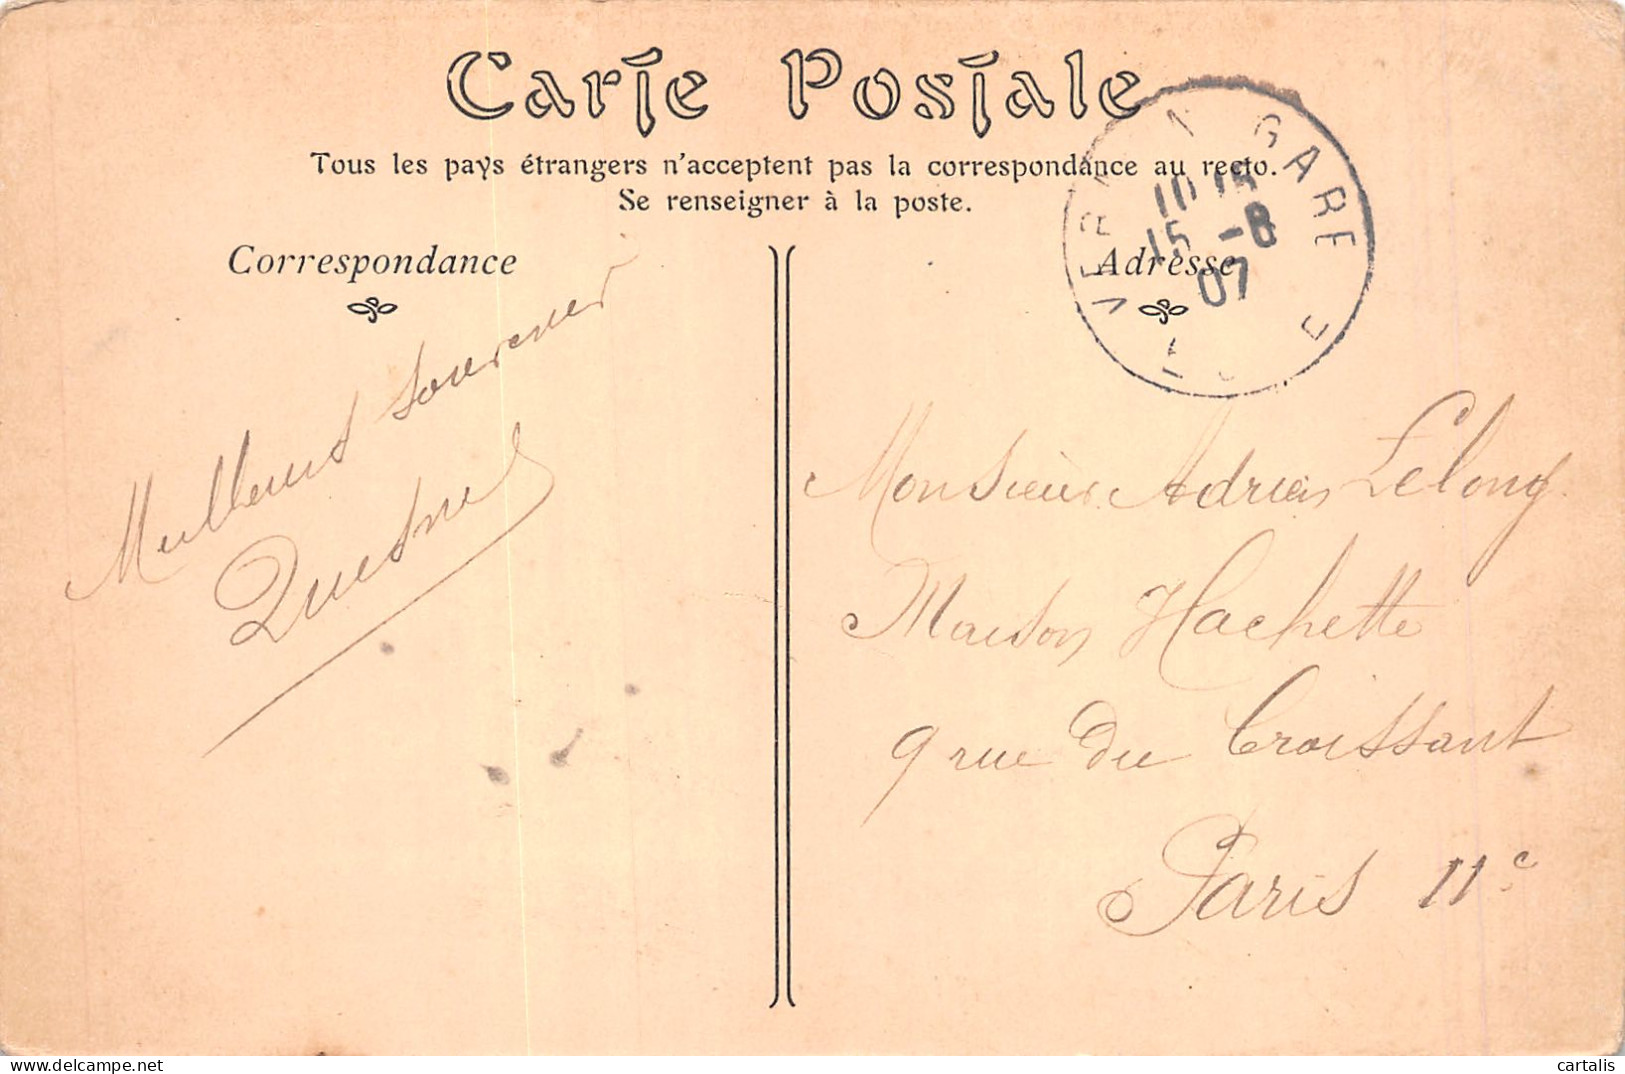 Carte Postale
Tous les pays étrangers n'acceptent pas la correspondance au recto.
Se renseigner à la poste.
Correspondance
Adresse
GARE
10 15
15 -8
07
Meilleurs souvenir
Quesnel
Monsieur Adrien Lelong
Maison Hachette
9 rue du Croissant
Paris 11e
cartalis